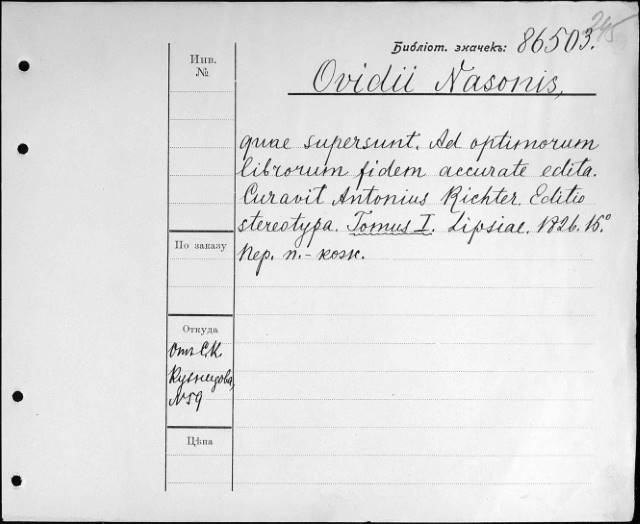 245
Библіот. значекъ: 86503.
Инв.
№
Ovidii Nasonis,
quae supersunt. Ad optimorum
librorum fidem accurate edita.
Curavit Antonius Richter. Editio
stereotypa. Tomus I. Lipsiae. 1826. 16.°
Пер. п.-кож.
По заказу
Откуда
Отъ С.К
Кузнецова,
№59
Цѣна